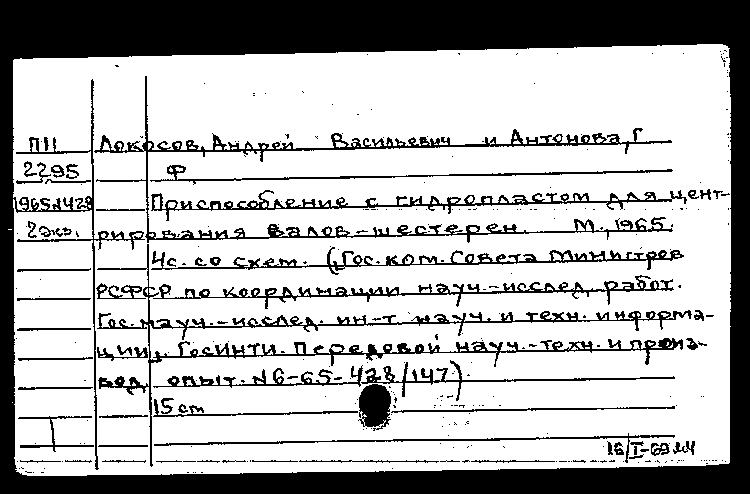 ПII Локосов, Андрей Васильевич и Антонова, Г
2295 Ф
1965.1428 Приспособление с гидропластом для цент-
2 экз. рирования валов-шестерен. М., 1965.
4с. со схем. (Гос. ком. Совета Министров
РСФСР по координации науч.-исслед. работ.
Гос. науч.-исслед. ин-т науч. и техн. информа-
ции, ГОСИНТИ. Передовой науч.-техн. и произ-
вод. опыт. N 6-65-428/147)
15 cm
16/I-69